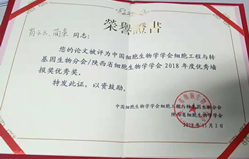 榮譽證書
同志：
您的论文被评为中国细胞生物学学会细胞工程与转
基因生物分会/陕西省细胞生物学学会2018年度优秀墙
报奖优秀奖。
特发此证，以资鼓励。
中国细胞生物学学会细胞工程与转基因生物分会
陕西省细胞生物学学会
2018年11月3日